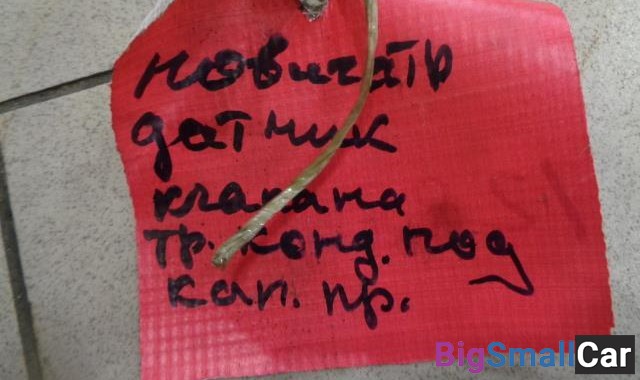 новигатр
датчик
клапана
тр. конд. под
кап. пр.
BigSmallCar